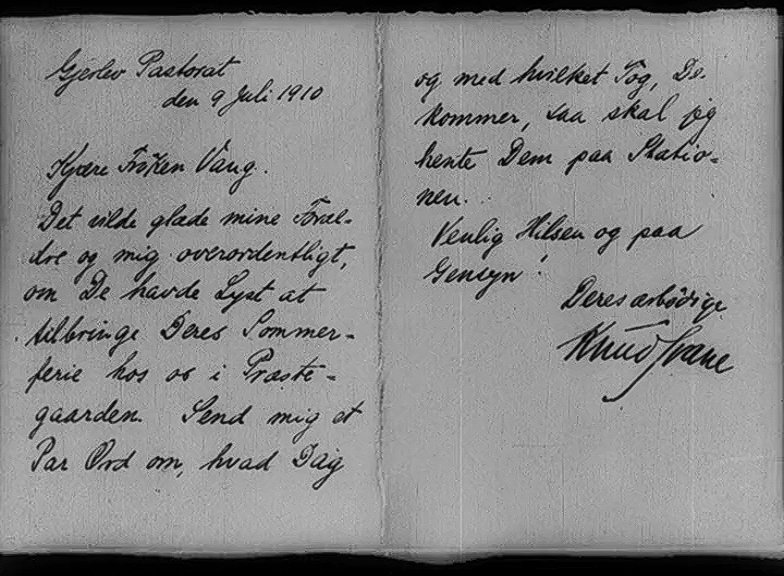 Gjerlev Pastorat
den 9 Juli 1910
Kjære Frøken Vang.
Det vilde glæde mine Foræl-
dre og mig overordentligt,
om De havde Lyst at
tilbringe Deres Sommer-
ferie hos os i Præste-
gaarden. Send mig et
Par Ord om, hvad Dag
og med hvilket Tog, De
kommer, saa skal jeg
hente Dem paa Statio-
nen.
Venlig Hilsen og paa
Gensyn!
Deres ærbødige
Knud Svane